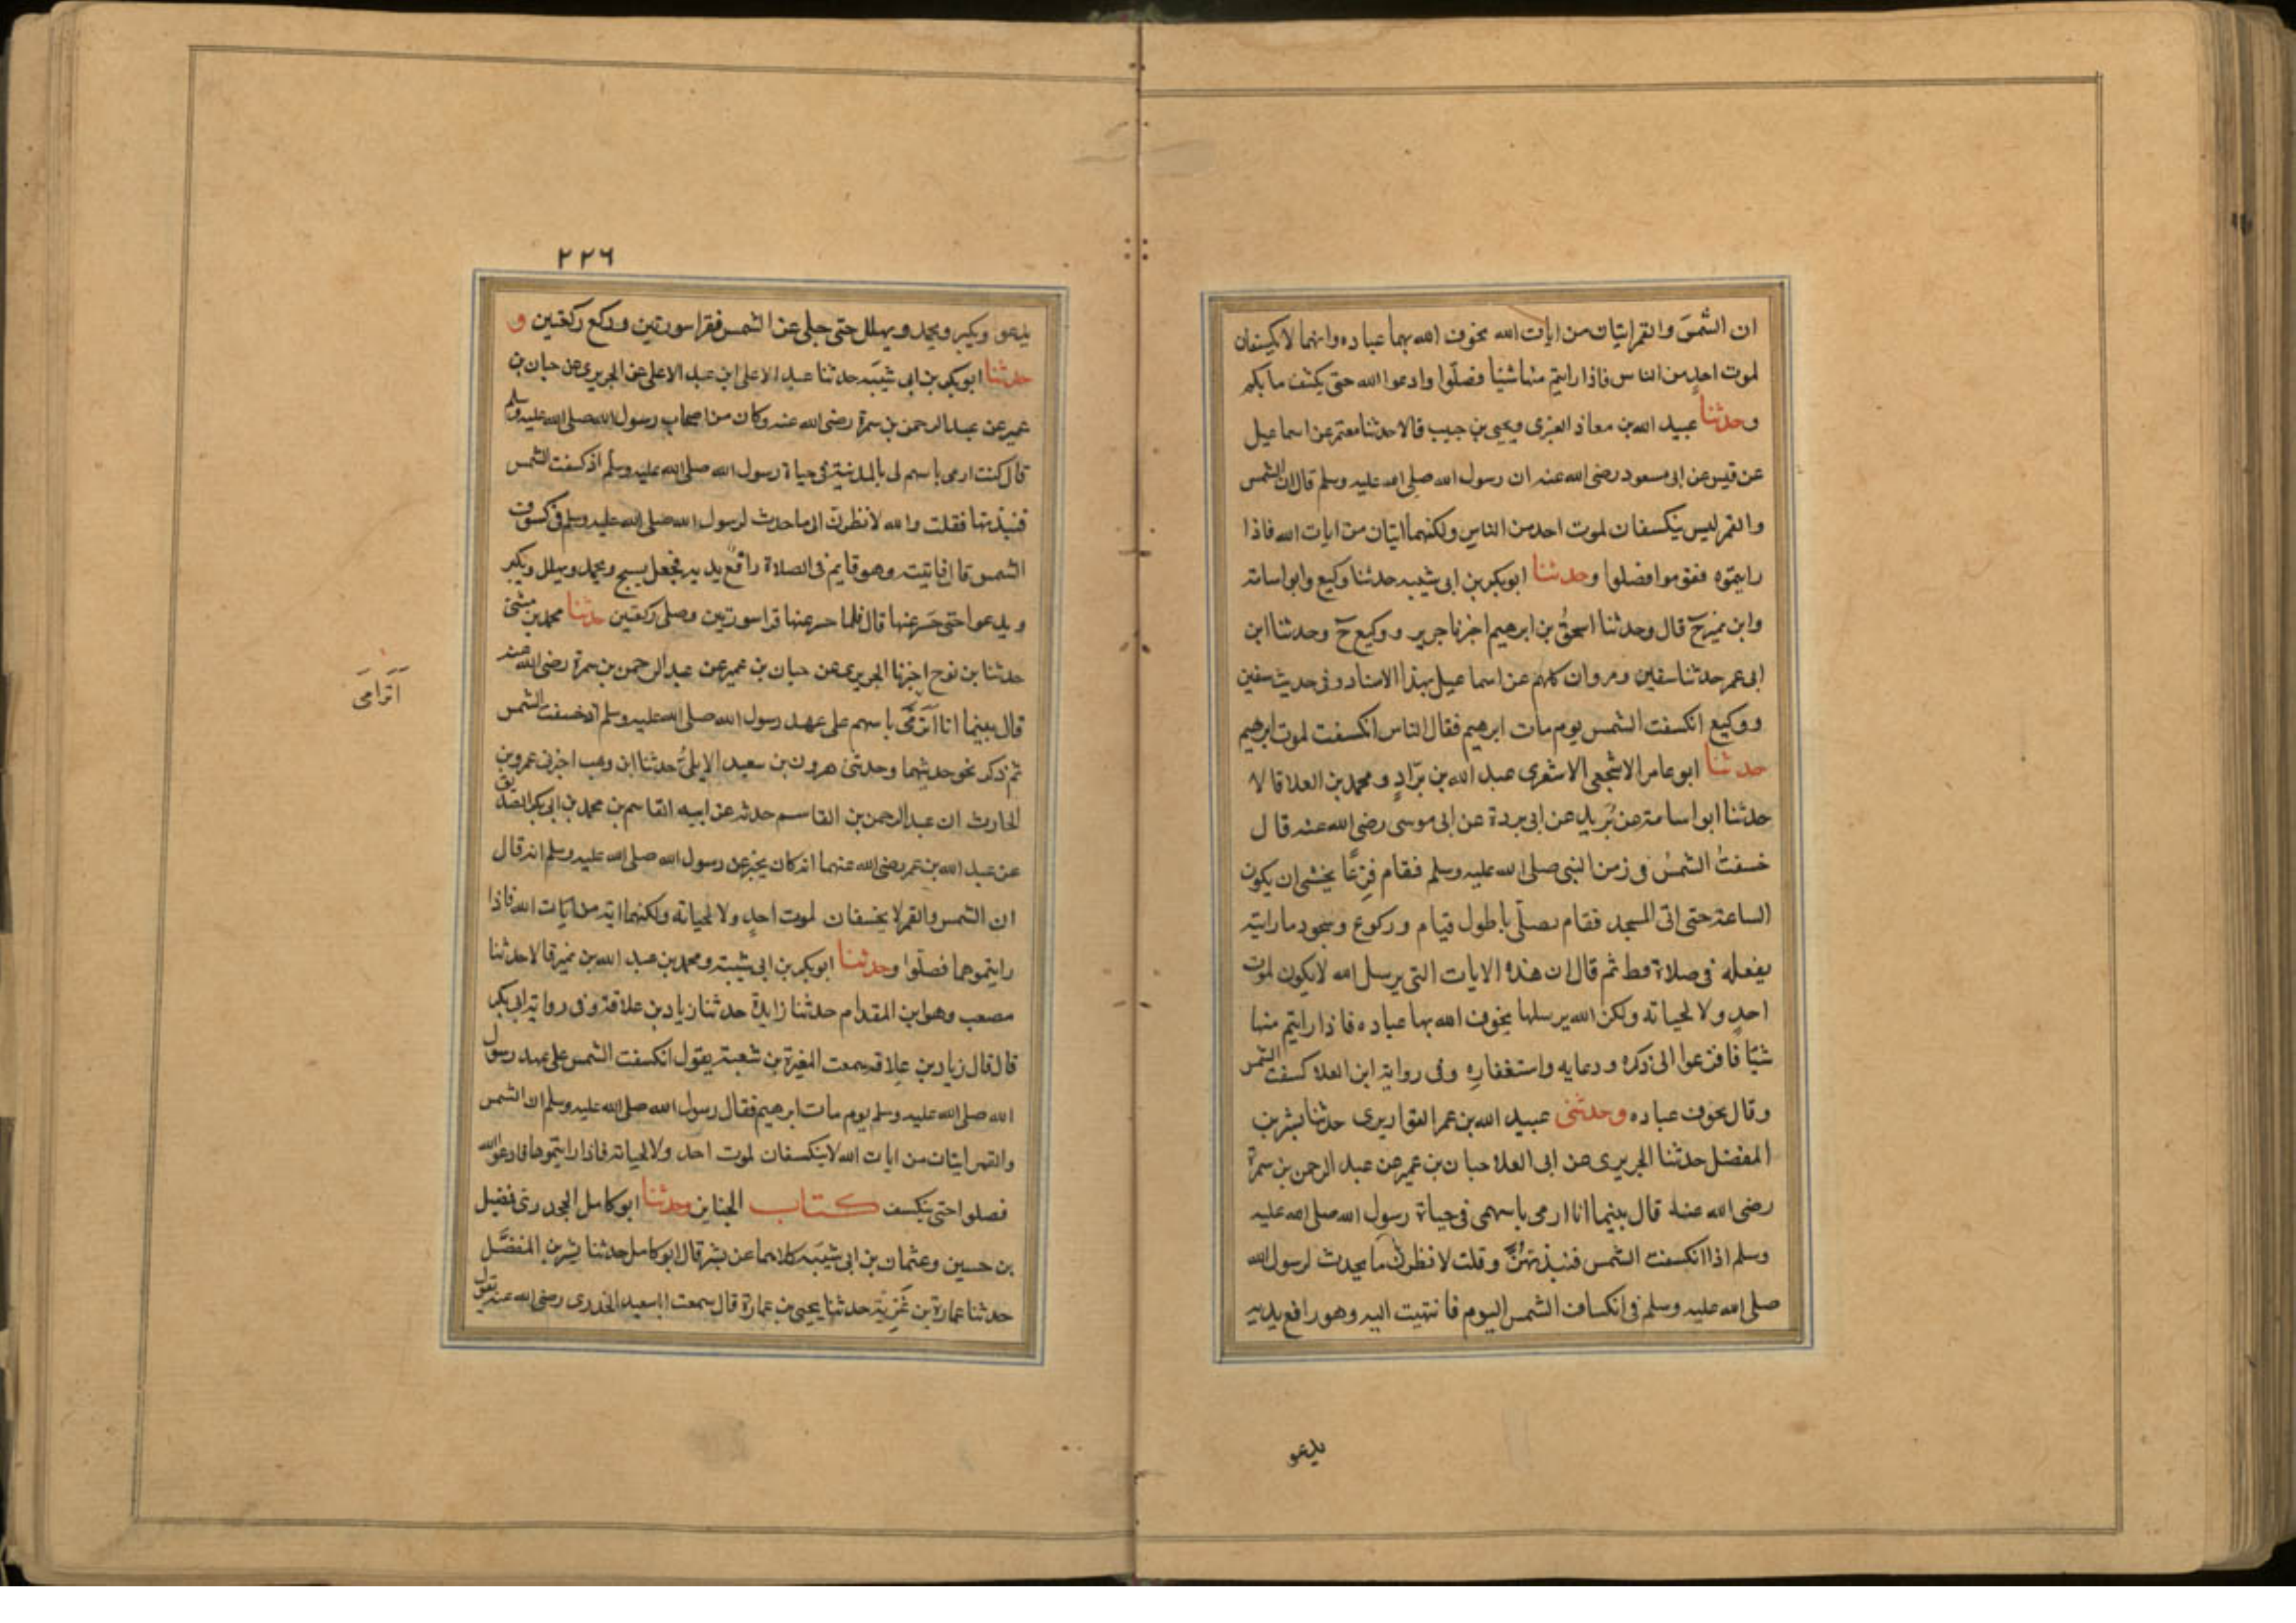 ان الشمسَ والقمر ايتان من ايات الله يخوف الله بهما عباده وانهما لا يكسفان
لموت احدٍ من الناس فاذا رايتم منها شيئا فصلّوا وادعوا الله حتى يكشف ما بكم
وحدثنا عبيد الله بن معاذ العنبرى ويحيى بن حبيب قالا حدثنا معتمر عن اسماعيل
عن قيس عن ابى مسعود رضى الله عنه ان رسول الله صلى الله عليه وسلم قال ان الشمس
والقمر ليس ينكسفان لموت احد من الناس ولكنهما ايتان من ايات الله فاذا
رايتموه فقوموا فصلوا وحدثنا ابو بكر بن ابى شيبه حدثنا وكيع وابو اسامة
وابن نمير ح قال وحدثنا اسحقُ بن ابرهيم اخبرنا جرير ووكيع ح وحدثنا ابن
ابى عمر حدثنا سفين ومروان كلهم عن اسماعيل بهذا الاسناد وفى حديث سفين
ووكيع انكسفت الشمس يوم مات ابرهيم فقال الناس انكسفت لموت ابرهيم
حدثنا ابو عامر الاشجعى الاشعرى عبد الله بن برّادٍ ومحمد بن العلا قالا
حدثنا ابو اسامة عن بُرَيد عن ابى بردة عن ابى موسى رضى الله عنه قال
خسفت الشمسُ فى زمن النبى صلى الله عليه وسلم فقام فزعًا يخشى ان يكون
الساعة حتى اتى المسجد فقام يصلّى باطول قيام وركوع وسجود ما رايته
يفعله فى صلاة قط ثم قال ان هذه الايات التى يرسل الله لا يكون لموت
احدٍ ولا لحياته ولكن الله يرسلها يخوف الله بها عباده فاذا رايتم منها
شيًا فافزعوا الى ذكره ودعايه واستغفارِه وفى رواية ابن العلا كسفت الشمس
وقال يخوف عباده وحدثنى عبيد الله بن عمر القواريرى حدثنا بشر بن
المفضل حدثنا الجريرى عن ابى العلا حبان بن عمير عن عبد الرحمن بن سمرة
رضى الله عنه قال بينما انا ارمى باسهمى فى حياة رسول الله صلى الله عليه
وسلم اذا انكسفت الشمس فنبذتهُنَّ وقلت لانظرن ما يحدث لرسول الله
صلى الله عليه وسلم فى انكساف الشمس اليوم فانتهيت اليه وهو رافع يديه
يدعو
٢٢٦
يدعو ويكبر ويحمد ويهلل حتى جلى عن الشمس فقرا سورتين وركع ركعتين و
حدثنا ابو بكر بن ابى شيبَه حدثنا عبد الاعلى ابن عبد الاعلى عن الجريرى عن حبان بن
عمير عن عبد الرحمن بن سمرة رضى الله عنه وكان من اصحاب رسول الله صلى الله عليه وسلم
قال كنت ارمى باسهم لى بالمدينة فى حياة رسول الله صلى الله عليه وسلم اذ كسفت الشمس
فنبذتها فقلت والله لانظرن الى ما حدث لرسول الله صلى الله عليه وسلم فى كسوف
الشمس قال فاتيته وهو قايم فى الصلاة رافع يديه فجعل يسبح ويحمد ويهلل ويكبر
ويدعوا حتى حَسَر عنها قال فلما حسر عنها قرا سورتين وصلى ركعتين حدثنا محمد بن مثنى
حدثنا بن نوح اخبرنا الجريرى عن حبان بن عمير عن عبد الرحمن بن سمرة رضى الله عنه
قال بينما انا اَتَرَمَّى باسهم على عهد رسول الله صلى الله عليه وسلم اذ خسفت الشمس
اَتَرامَى
ثم ذكر نحو حديثهما وحدثنى هرون بن سعيد الايلىُّ حدثنا ابن وهب اخبرنى عمرو بن
الحارث ان عبد الرحمن بن القاسم حدثه عن ابيه القاسم بن محمد بن ابى بكر الصديق
عن عبد الله بن عمر رضى الله عنهما انه كان يخبر عن رسول الله صلى الله عليه وسلم انه قال
ان الشمس والقمر لا يخسفان لموت احدٍ ولا لحياته ولكنهما اية من ايات الله فاذا
رايتموهما فصلّوا وحدثنا ابو بكر بن ابى شيبة ومحمد بن عبد الله بن نمير قالا حدثنا
مصعب وهو ابن المقدام حدثنا زايدة حدثنا زياد بن علاقة وفى رواية ابى بكر
قال قال زياد بن علاقه سمعت المغيرة بن شعبة يقول انكسفت الشمس على عهد رسول
الله صلى الله عليه وسلم يوم مات ابرهيم فقال رسول الله صلى الله عليه وسلم ان الشمس
والقمر ايتان من ايات الله لا ينكسفان لموت احد ولا لحياته فاذا رايتموها فادعوا الله
فصلوا حتى ينكسف كتاب الجنايز وحدثنا ابو كامل الجحدرى فضيل
بن حسين وعثمان بن ابى شيبَه كلاهما عن بشر قال ابو كامل حدثنا بشر بن المفضَّل
حدثنا عمارة بن غَزِيّة حدثنا يحيى بن عمارة قال سمعت ابا سعيد الخدرى رضى الله عنه يقول